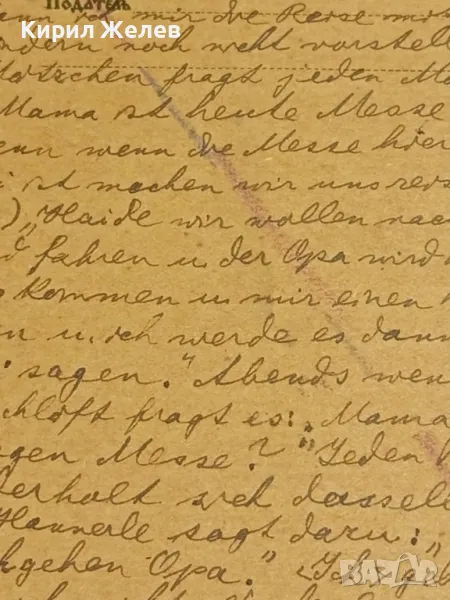 Податель
Кирил Желев
en ich mir die Reise mit
ndern noch weht vorstell
Mätzchen fragt jeden Mo
Mama ist heute Messe
enn wenn die Messe hier
ist machen wir uns reis
) „Haide wir wollen nac
d fahren u. der Opa wird
Kommen u. mir einen
n u. ich werde es dann
sagen." Abends wen
chläft fragt es: „Mama
gen Messe?" Jeden
derholt sich dassel
Hannerle sagt dazu: „
hgehen Opa." Ich
bazar.bg